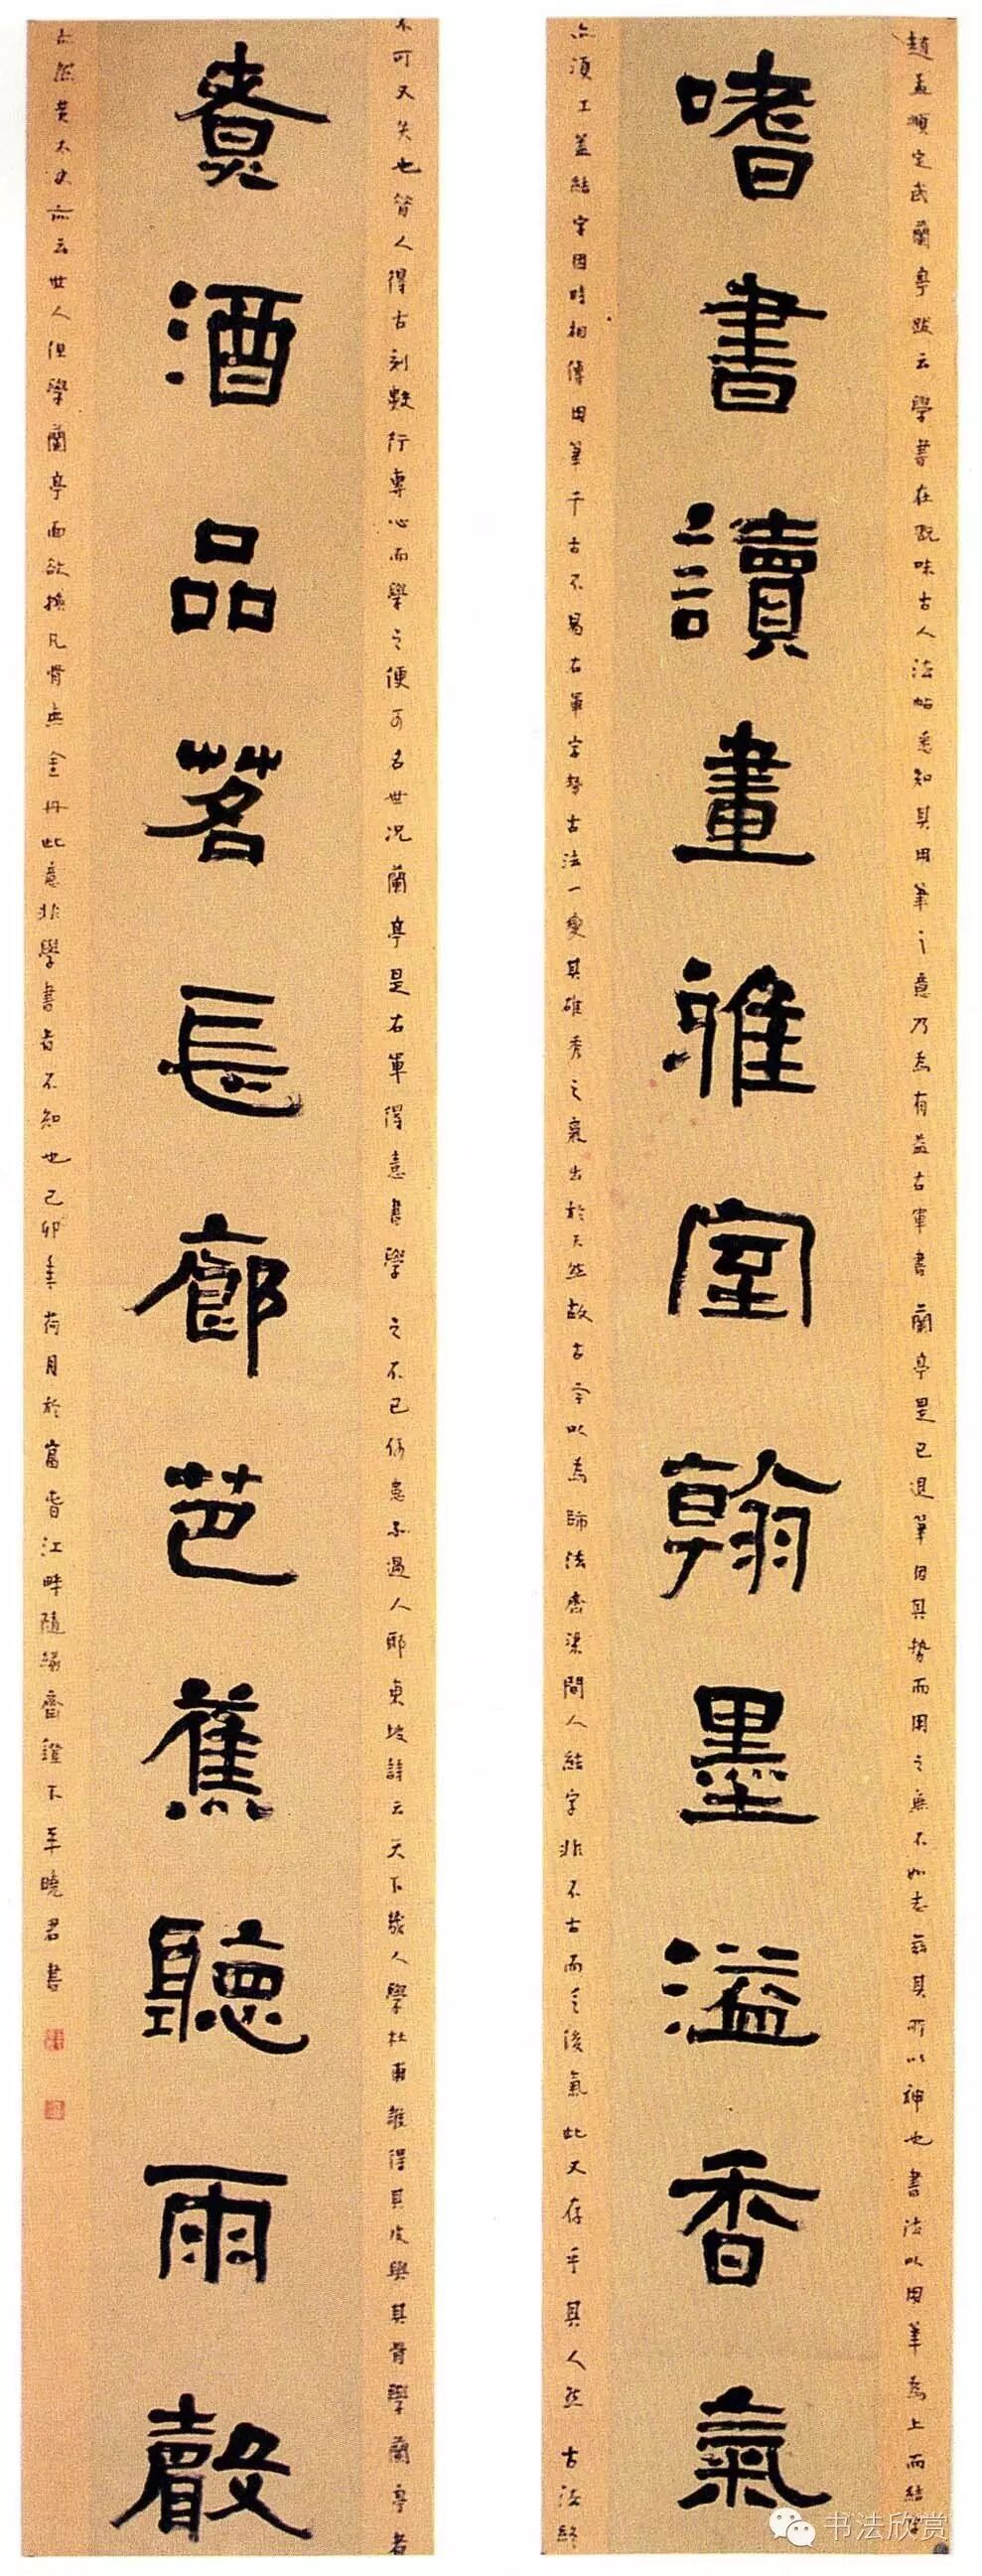 嗜書讀畫雅室翰墨溢香氣
趙孟頫定武蘭亭跋云學書在玩味古人法帖悉知其用筆之意乃為有益右軍書蘭亭是已退筆因其勢而用之無不如志茲其所以神也書法以用筆為上而結字
亦須工蓋結字因時相傳用筆千古不易右軍字勢古法一變其雄秀之氣出於天然故古今以為師法齊梁間人結字非不古而乏俊氣此又存乎其人然古法終
不可又失也昔人得古刻數行專心而學之便可名世況蘭亭是右軍得意書學之不已何患不過人耶東坡詩云天下幾人學杜甫誰得其皮與其骨學蘭亭者
亦然黃太史亦云世人但學蘭亭面欲換凡骨無金丹此意非學書者不知也己卯年荷月於富春江畔隨緣齋燈下王曉君書
賣酒品茗長廊芭蕉聽雨聲
书法欣赏